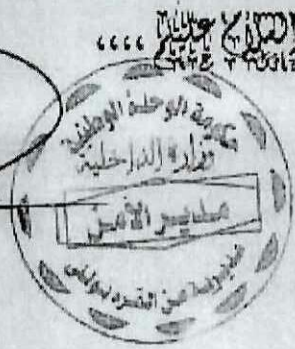 السلام عليكم ,,,,
حكومة الوحدة الوطنية
وزارة الداخلية
مدير الأمن
مديرية